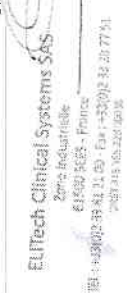 ELiTech Clinical Systems SAS
Zone Industrielle
61500 SEES - France
TEL : +33(0)2 33 81 21 00 - Fax : +33(0)2 33 28 77 51